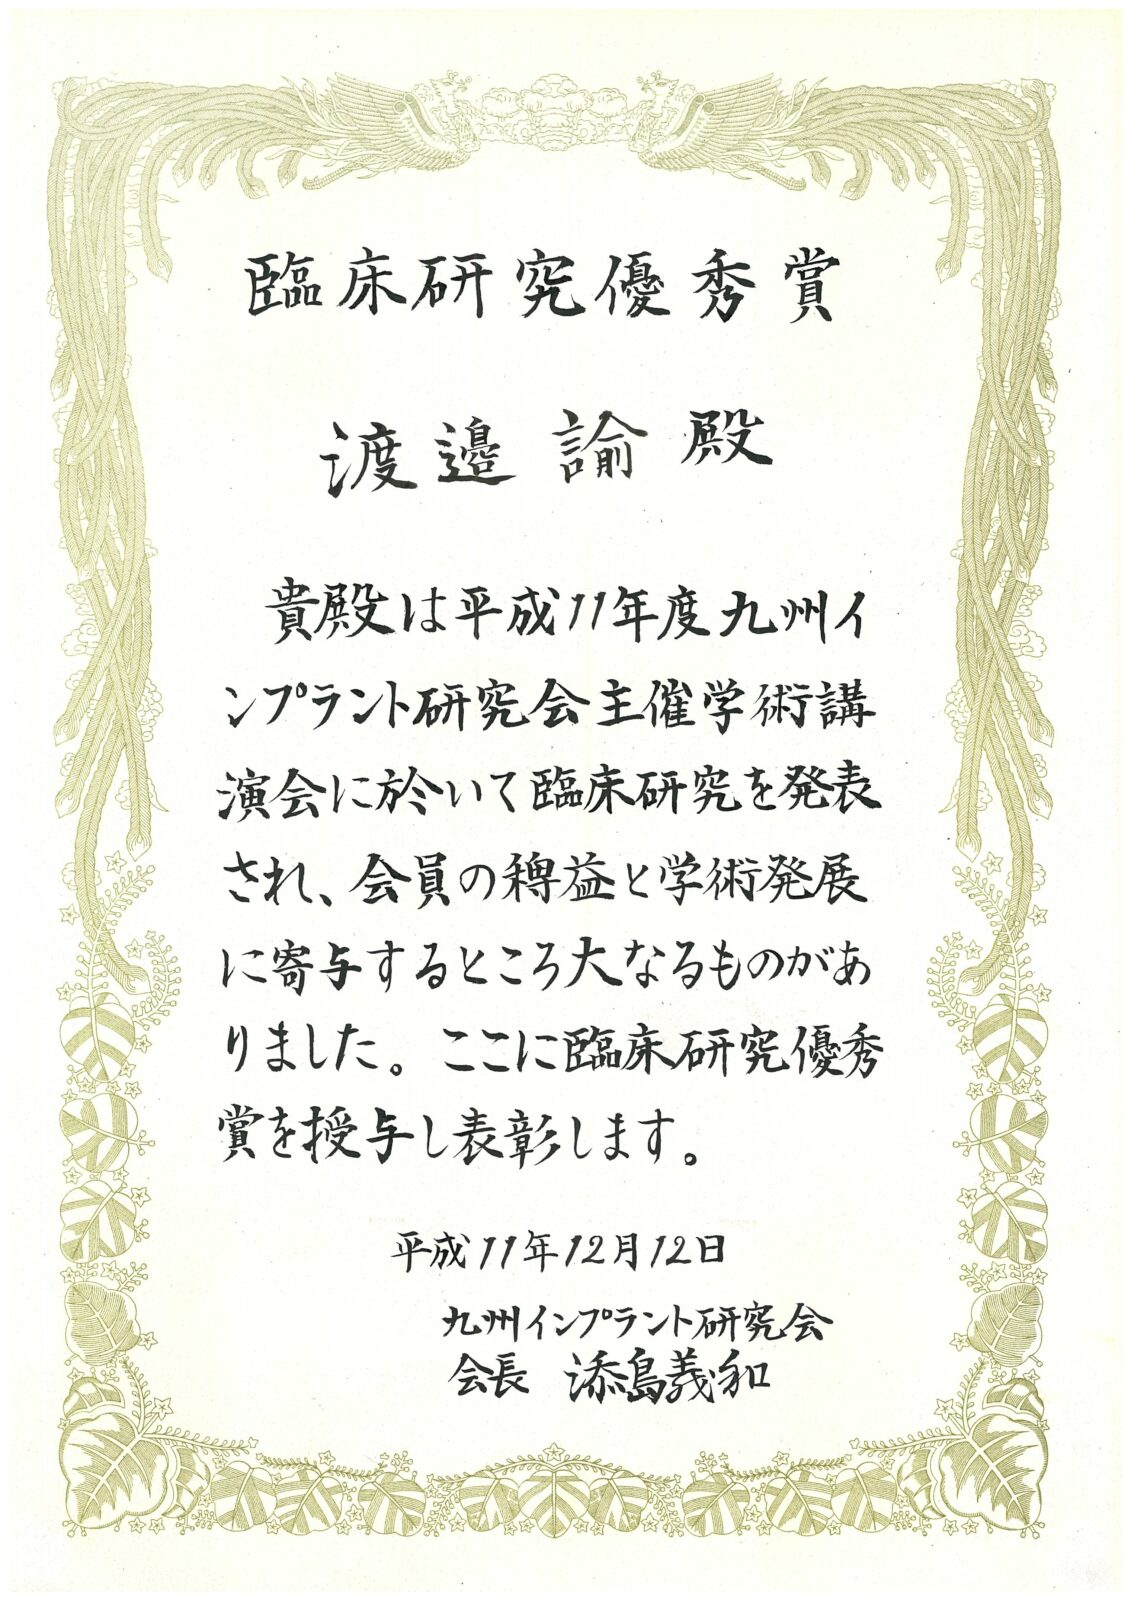 臨床研究優秀賞
渡邉諭殿
貴殿は平成11年度九州イ
ンプラント研究会主催学術講
演会に於いて臨床研究を発表
され、会員の稗益と学術発展
に寄与するところ大なるものがあ
りました。ここに臨床研究優秀
賞を授与し表彰します。
平成11年12月12日
九州インプラント研究会
会長 添島義和